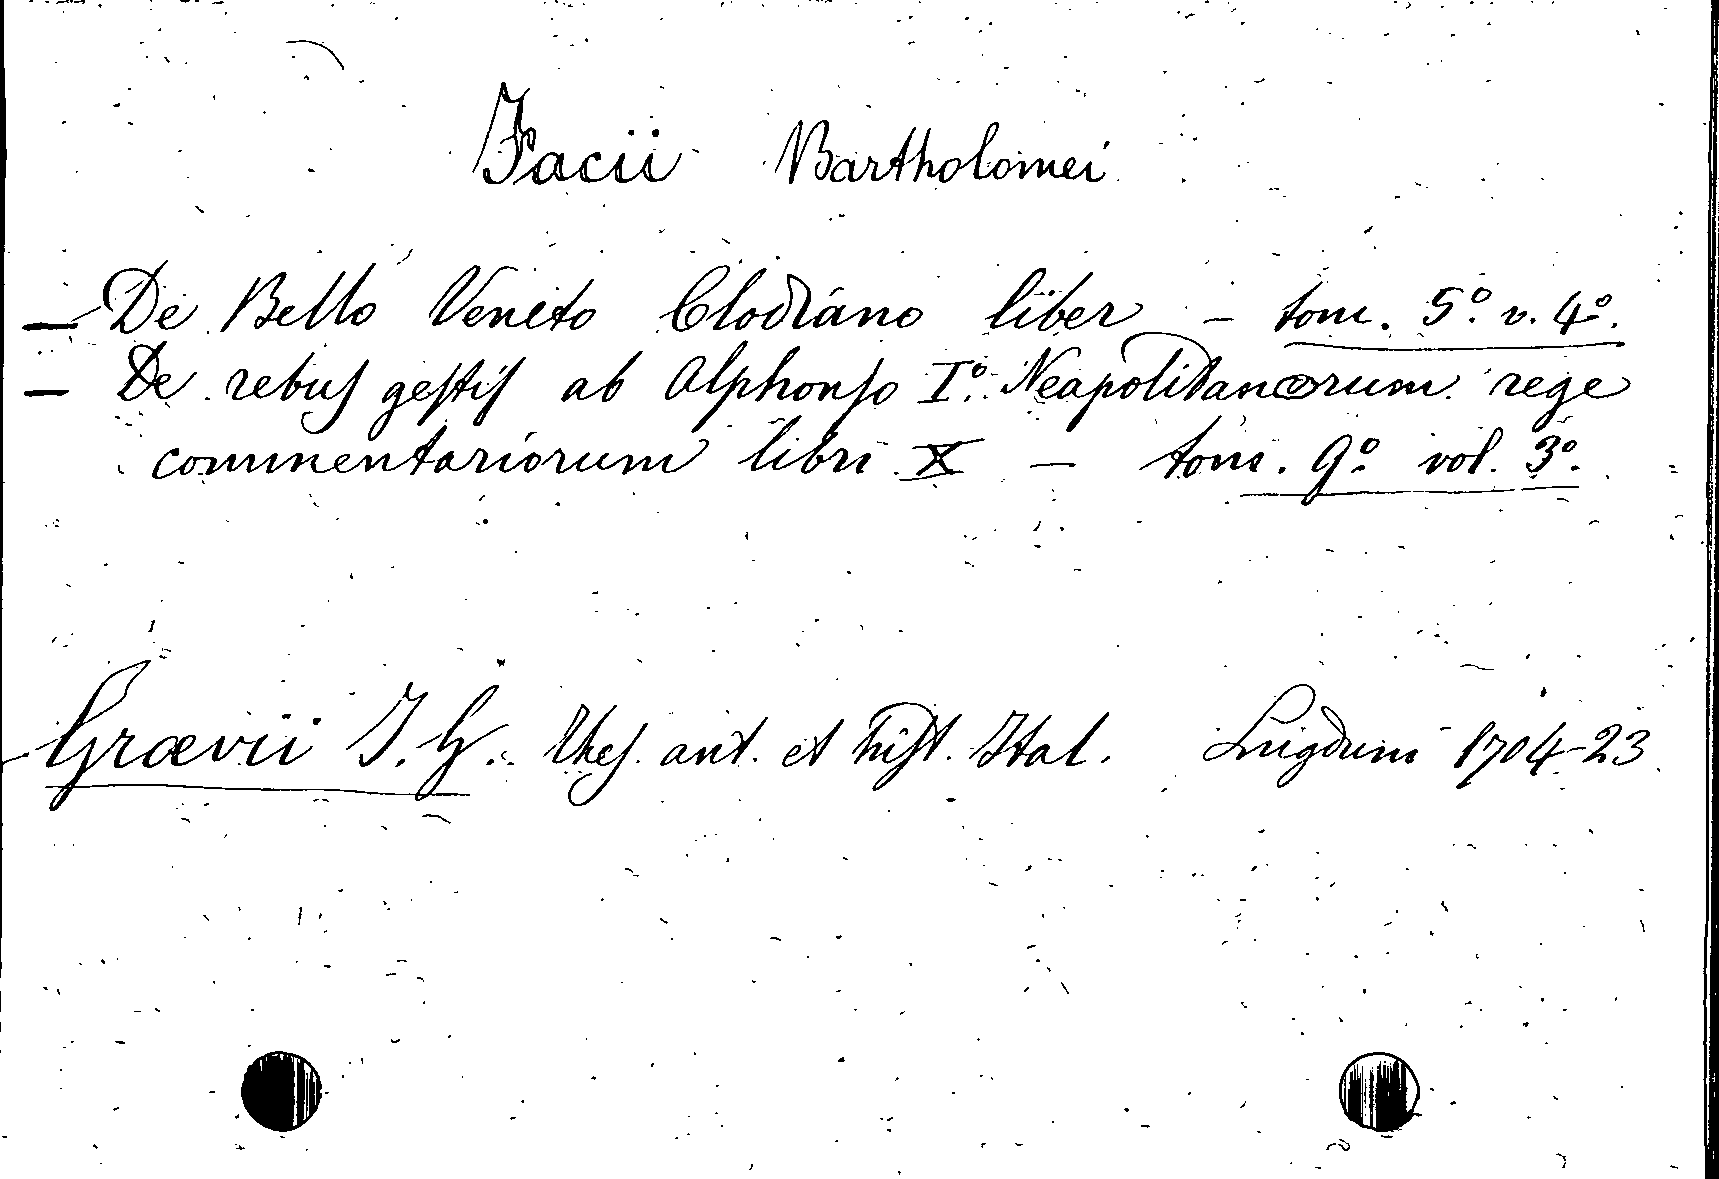 Facii Bartholomei
— De Bello Veneto Clodiano liber — tom. 5º. v. 4º.
— De rebus gestis ab Alphonso Iº. Neapolitanorum rege
commentariorum libri X — tom. 9º. vol. 3º.
Grævii J. G. Thes. ant. et hist. Ital. Lugduni 1704-23